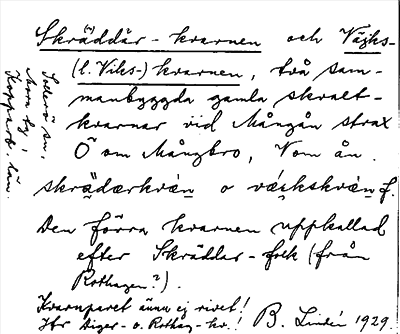 Skräddar-kvarnen och Väjks-
(l. Viks-) kvarnen, två sam-
manbyggda gamla skvalt-
kvarnar vid Mångån strax
Ö om Mångbro, V om ån.
skrädarkvän o väjkskvän f.
Den förra kvarnen uppkallad
efter Skräddar-folk (från
Rothagen?).
Kvarnparet ännu ej rivet!
Jfr o. Rothag-kv.! B. Lindén 1929.
Sollerö sn,
Mora tg,
Kopparb. län.